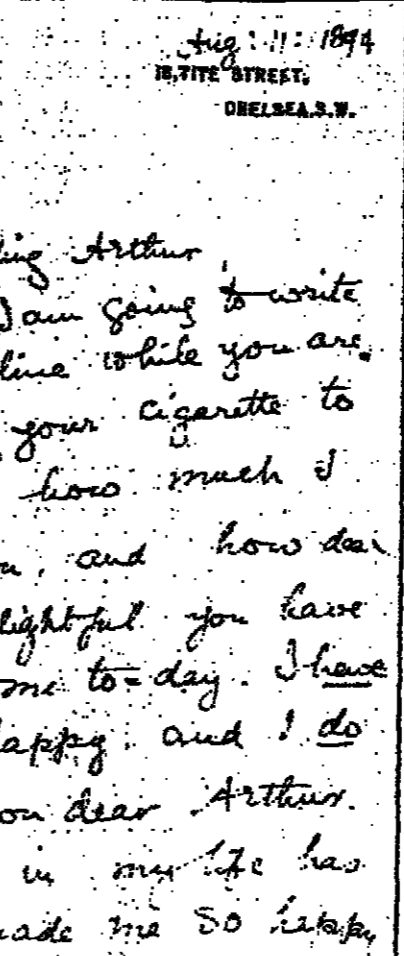 Aug: 11: 1894
16, TITE STREET,
CHELSEA. S.W.
ing Arthur
I am going to write
line while you are
your cigarette to
how much I
u, and how dear
lightful you have
me to-day. I have
appy, and I do
ou dear Arthur.
in my life has
ade me so happy